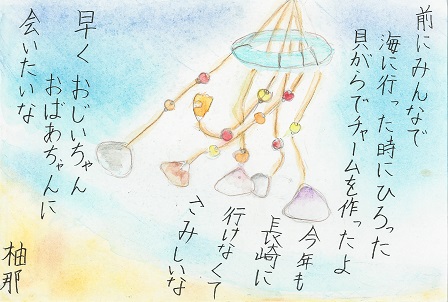 前にみんなで
海に行った時にひろった
貝がらでチャームを作ったよ
今年も
長崎に
行けなくて
さみしいな
早く おじいちゃん
おばあちゃんに
会いたいな
柚那